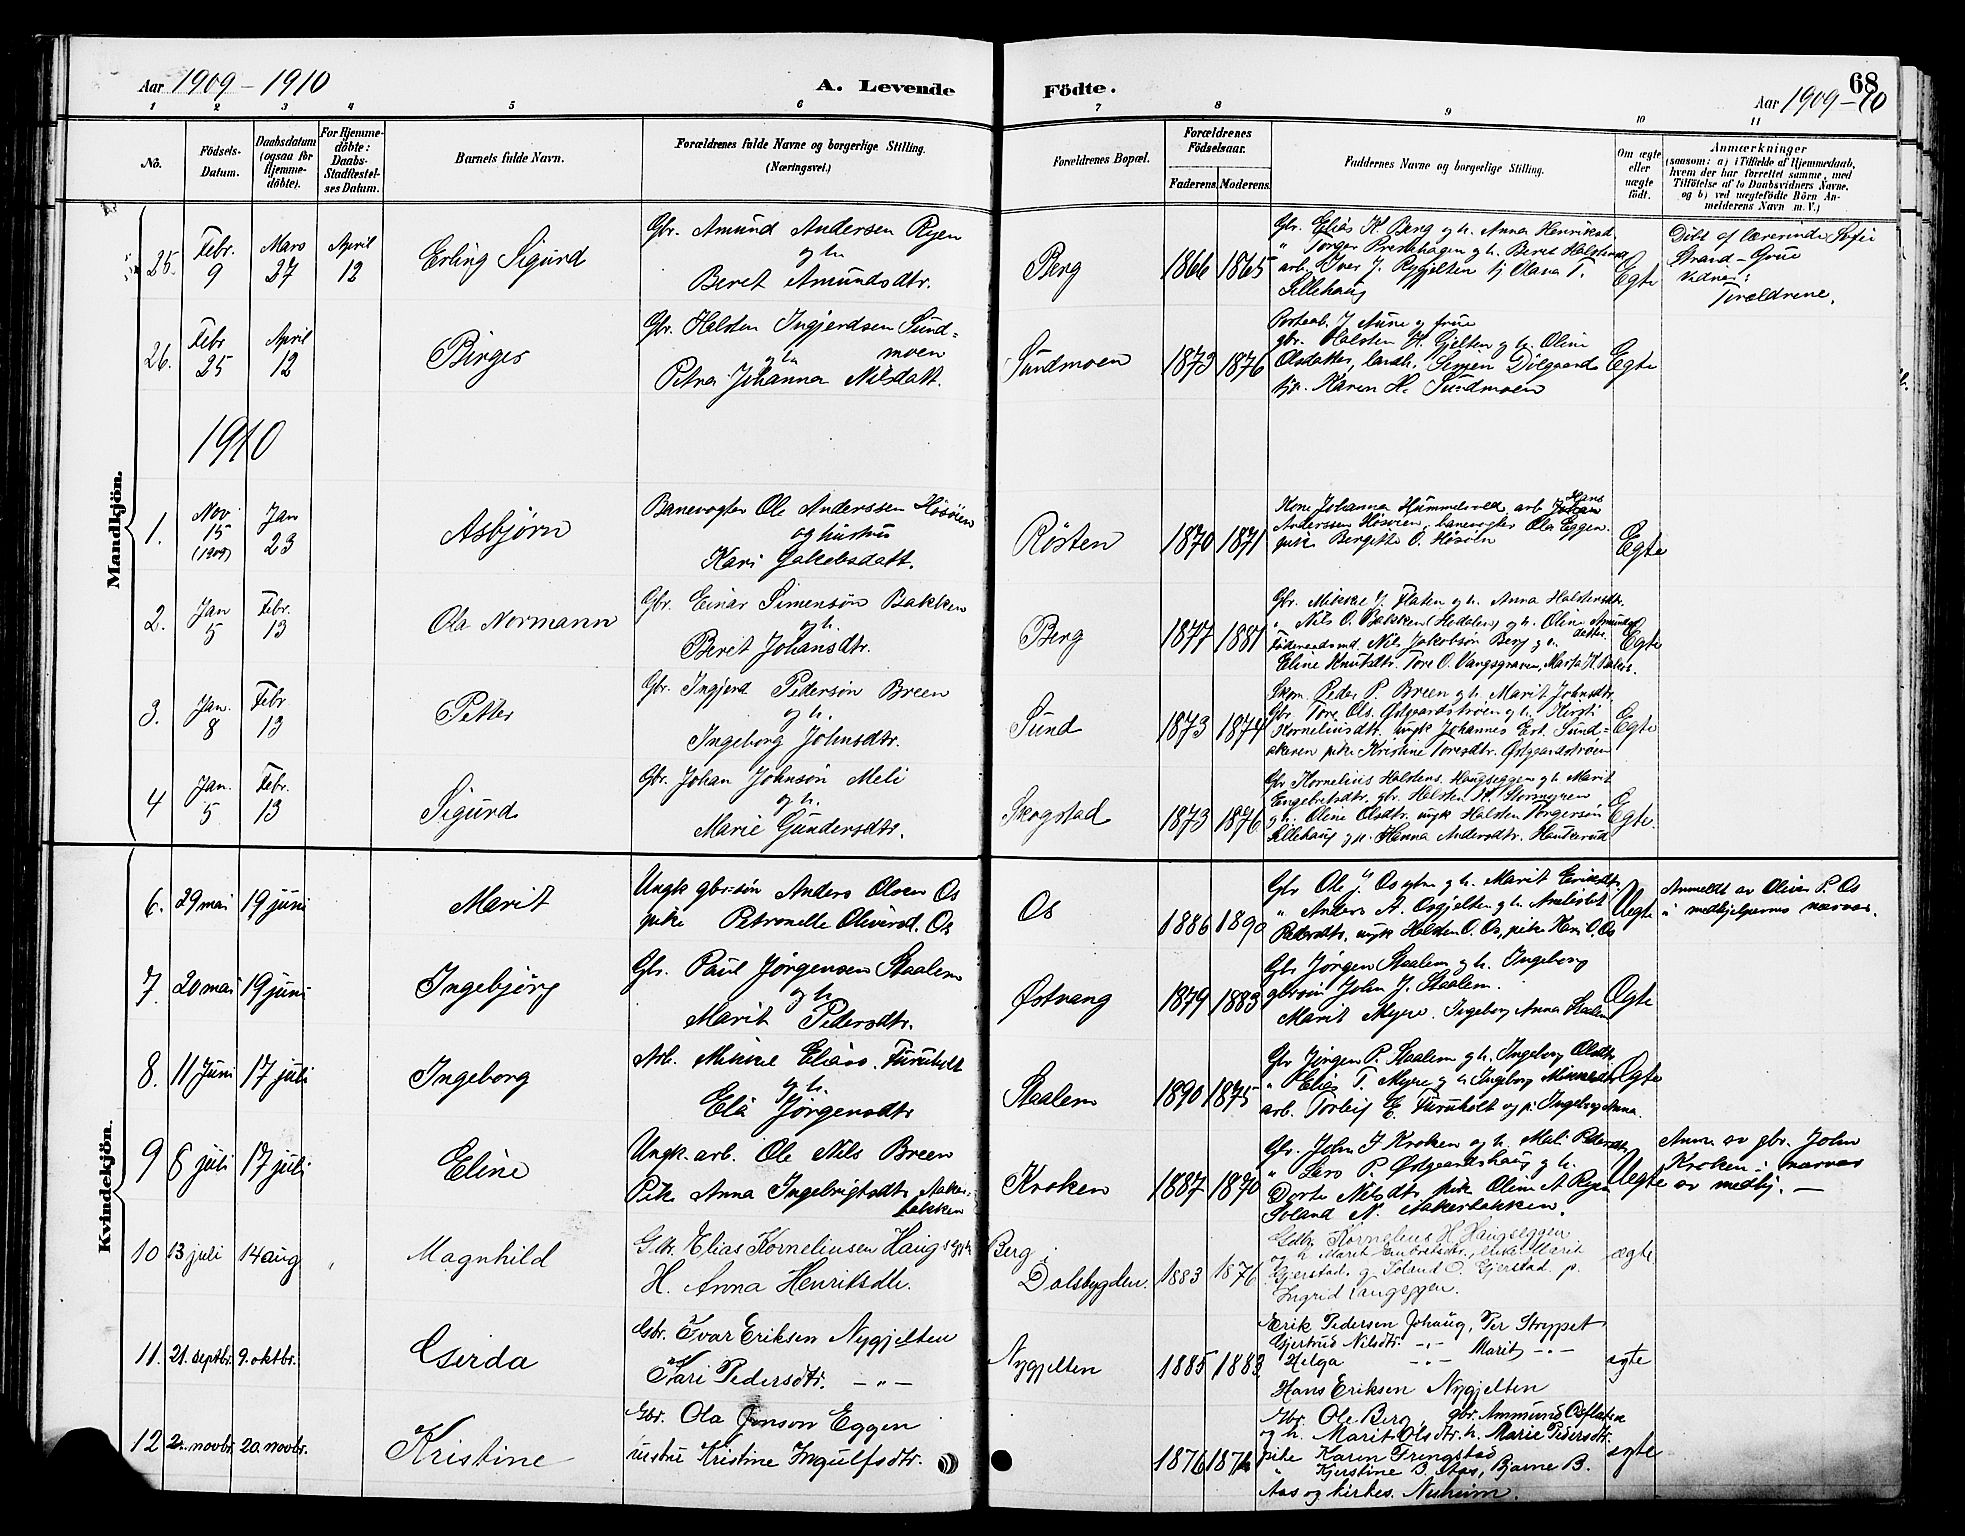 Aar 1909 - 1910
A. Levende
Födte.
68
Aar 1909-10
1 2 3 4 5 6 7 8 9 10 11
No.
Födsels-Datum.
Daabsdatum (ogsaa for Hjemme-döbte).
For Hjemme-döbte: Daabs-Stadfæstel-ses Datum.
Barnets fulde Navn.
Forældrenes fulde Navne og borgerlige Stilling.
(Næringsvei.)
Forældrenes Bopæl.
Forældrenes Födselsaar.
Faderens. Moderens.
Faddernes Navne og borgerlige Stilling.
Om ægte eller uægte födt.
Anmærkninger
(saasom: a) i Tilfælde af Hjemmedaab,
hvem der har forrettet samme, med
Tilföielse af to Daabsvidners Navne,
og b) ved uægtefödte Börn An-
melderens Navn m. V.)
Mandkjön.
25. Febr. 9 Mars 27 April 12
Erling Sigurd
Gbr. Amund Andersen Ryen
og h.
Beret Amundsdtr.
Berg
1866 1865
Gbr. Elias H. Berg og h. Anna Henriksd.
Egte
Döbt af lærerinde Sofie
Strand-Grue
Vidner:
Forældrene.
26. Febr 25 April 12
Birger
Gbr. Halsten Ingjerdsen Sund=
moen
og h.
Petra Johanna Nilsdatt.
Sundmoen
1873 1876
J. Aune og frue
gbr. Halsten H. Gjelten og h. Oline
Olsdatter, landh. Dölgaard
Karen H. Sundmoen
Egte
1910
1. Nov 15 (1909) Jan 23
Asbjørn
Banevogter Ole Anderssen Høsøien
og hustru
Kari Jakobsdatt.
Røsten
1870 1871
Kone Johanna Hummelvold, arb Hans
Anderssen Høsøien, banevogter Ola Eggen.
pike Bergitte O. Høsøien
Egte
2. Jan 5 Febr. 13
Ola Normann
Gbr. Einar Simensøn Bakken
og h.
Beret Johansdtr.
Berg
1877 1881
Gbr. Mikkel J. Floten og h. Anna Halstensdtr.
" Nils O. Bakken (Hodalen) og h. Oline Amunds
datter.
Föderaadsmd. Nils Jakobsøn Berg og h.
Eline Knutsdtr. Tore O. Vangsgraven, Marta H.
Egte
3. Jan. 8 Febr 13
Petter
Gbr. Ingjerd Pedersøn Breen
og h.
Ingeborg Johnsdtr.
Sund
1873 1874
Skom. Peder P. Breen og h. Marit Johnsdtr.
Gbr. Tore Ols. Østgaardstrøen og h. Kirsti
Kornelinsdtr. ungk Johannes Ert. Sund=
pike Kristine Toresdtr. Østgaardstrøen
Egte
4 Jan. 5 Febr. 13
Sigurd
Gbr. Johan Johnsøn Meli
og h.
Marie Gundersdtr.
Skogstad
1873 1876
Gbr Kornelius Halstens. Haugseggen og h. Marit
Engebretsdtr. gbr. Halsten H. Stormyren
og h. Oline Olsdtr. ungk Halsten Torgersøn
Lillehaug og p. Hanna Andersdtr.
Egte.
Kvindekjön.
6. 29 mai 19 juni
Marit
Ungk gbr-søn Anders Olsen Os
pike Petronelle Oliversd. Os
Os
1886 1890
Gbr Ole J. Osgjelten g h. Marit Eriksdtr.
" Anders A. Osgjelten g h.
Pedersdtr. ungk Halsten O. Os, pike Kari O. Os
Uegte
Anmeldt av Oliver P. Os
i medhjelpernes nærvær.
7. 20 mai 19 juni
Ingebjørg
Gbr. Paul Jørgensen Staalem
og h.
Marit Pedersdtr.
Østvang
1879 1883
Gbr Jørgen Staalem og h. Ingeborg
gbrsøn John J. Staalem.
Marit Myre. Ingeborg Anna Staalem
Ægte
8. 11 Juni 17 juli
Ingeborg
Arb. Mikkel Eliass. Furuholt
og h.
Eli Jørgensdtr
Staalem
1890 1875
Gbr Jørgen P. Staalem g h. Ingeborg Olsdtr.
" Elias T. Myre g h Ingeborg Mikkelsdtr
arb. Torleif E. Furuholt og p. Ingeborg Anna.
Ægte
9 8 juli 17 juli
Eline
Ungk. arb. Ole Nils Breen
Pike Anna Ingebrigtsdtr Aaker-
bakken
Kroken
1887 1870
Gbr. John J Kroken og h. Mali Pedersdtr
" Lars P. Østgaardshaug g h.
Dorte Nilsdtr pike Oline A Ryen
Toland N. Aakerbakken.
Uegte
Anm. av gbr. John
Kroken i nærvær
av medhj. -
10 13 juli 14 aug "
Magnhild
Gdbr. Elias Korneliusen Haugseggen
H. Anna Henriksdtr.
Berg i
Dalsbygden.
1883 1876
Gdbr. Kornelius H Haugseggen
og h Marit Embretsdtr., Marit
Gjerstad, g Toland O. Gjerstad p.
Ingrid Haugseggen.
ægte
11. 21. septbr. 9. oktbr.
Gerda
Gbr. Ivar Eriksen Nygjelten
Kari Pedersdtr. - " -
Nygjelten
1885 1883
Erik Pedersen Johaug, Per Strypet
Gjertrud Nilsdtr. -"- Marit -"-
Helga -"-
Hans Eriksen Nygjelten
ægte
12 2. novbr. 20. novbr.
Kristine
Gbr. Ola Jonson Eggen
hustru Kristine Ingulfsdtr.
1876 1876
Gbr. Ole Berg, gbr. Ammund Osfloten
og h. Marit Olsdtr. h. Marie Pedersdtr.
pike Karen Trengstad
" Kjerstine B. Aas, Bjarne B.
Aas og kirkes. Nusheim.
ægte